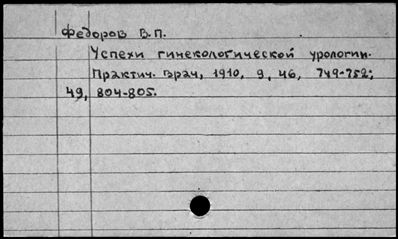 Федоров В.П.
Успехи гинекологической урологии.
Практич. врач, 1910, 9, 46, 749-752;
49, 804-805.